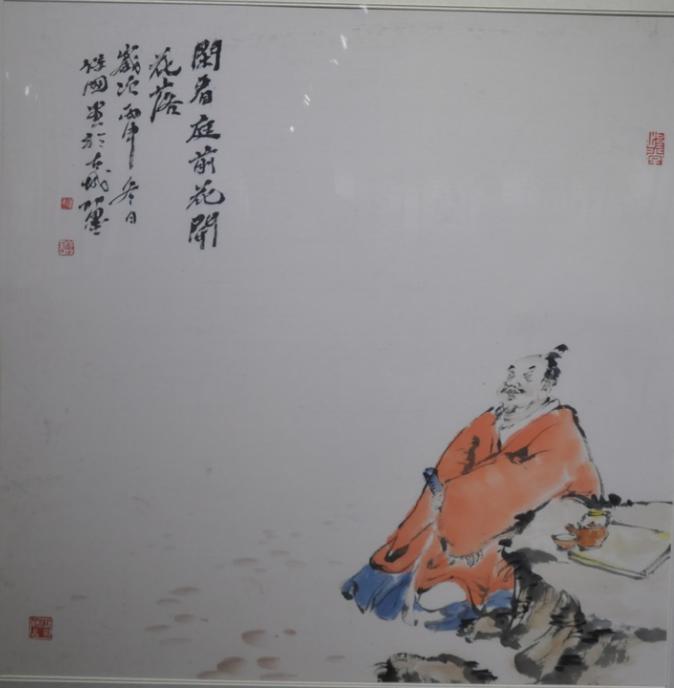 閑看庭前花開
花落
歲次丙申冬日
國黃於古城